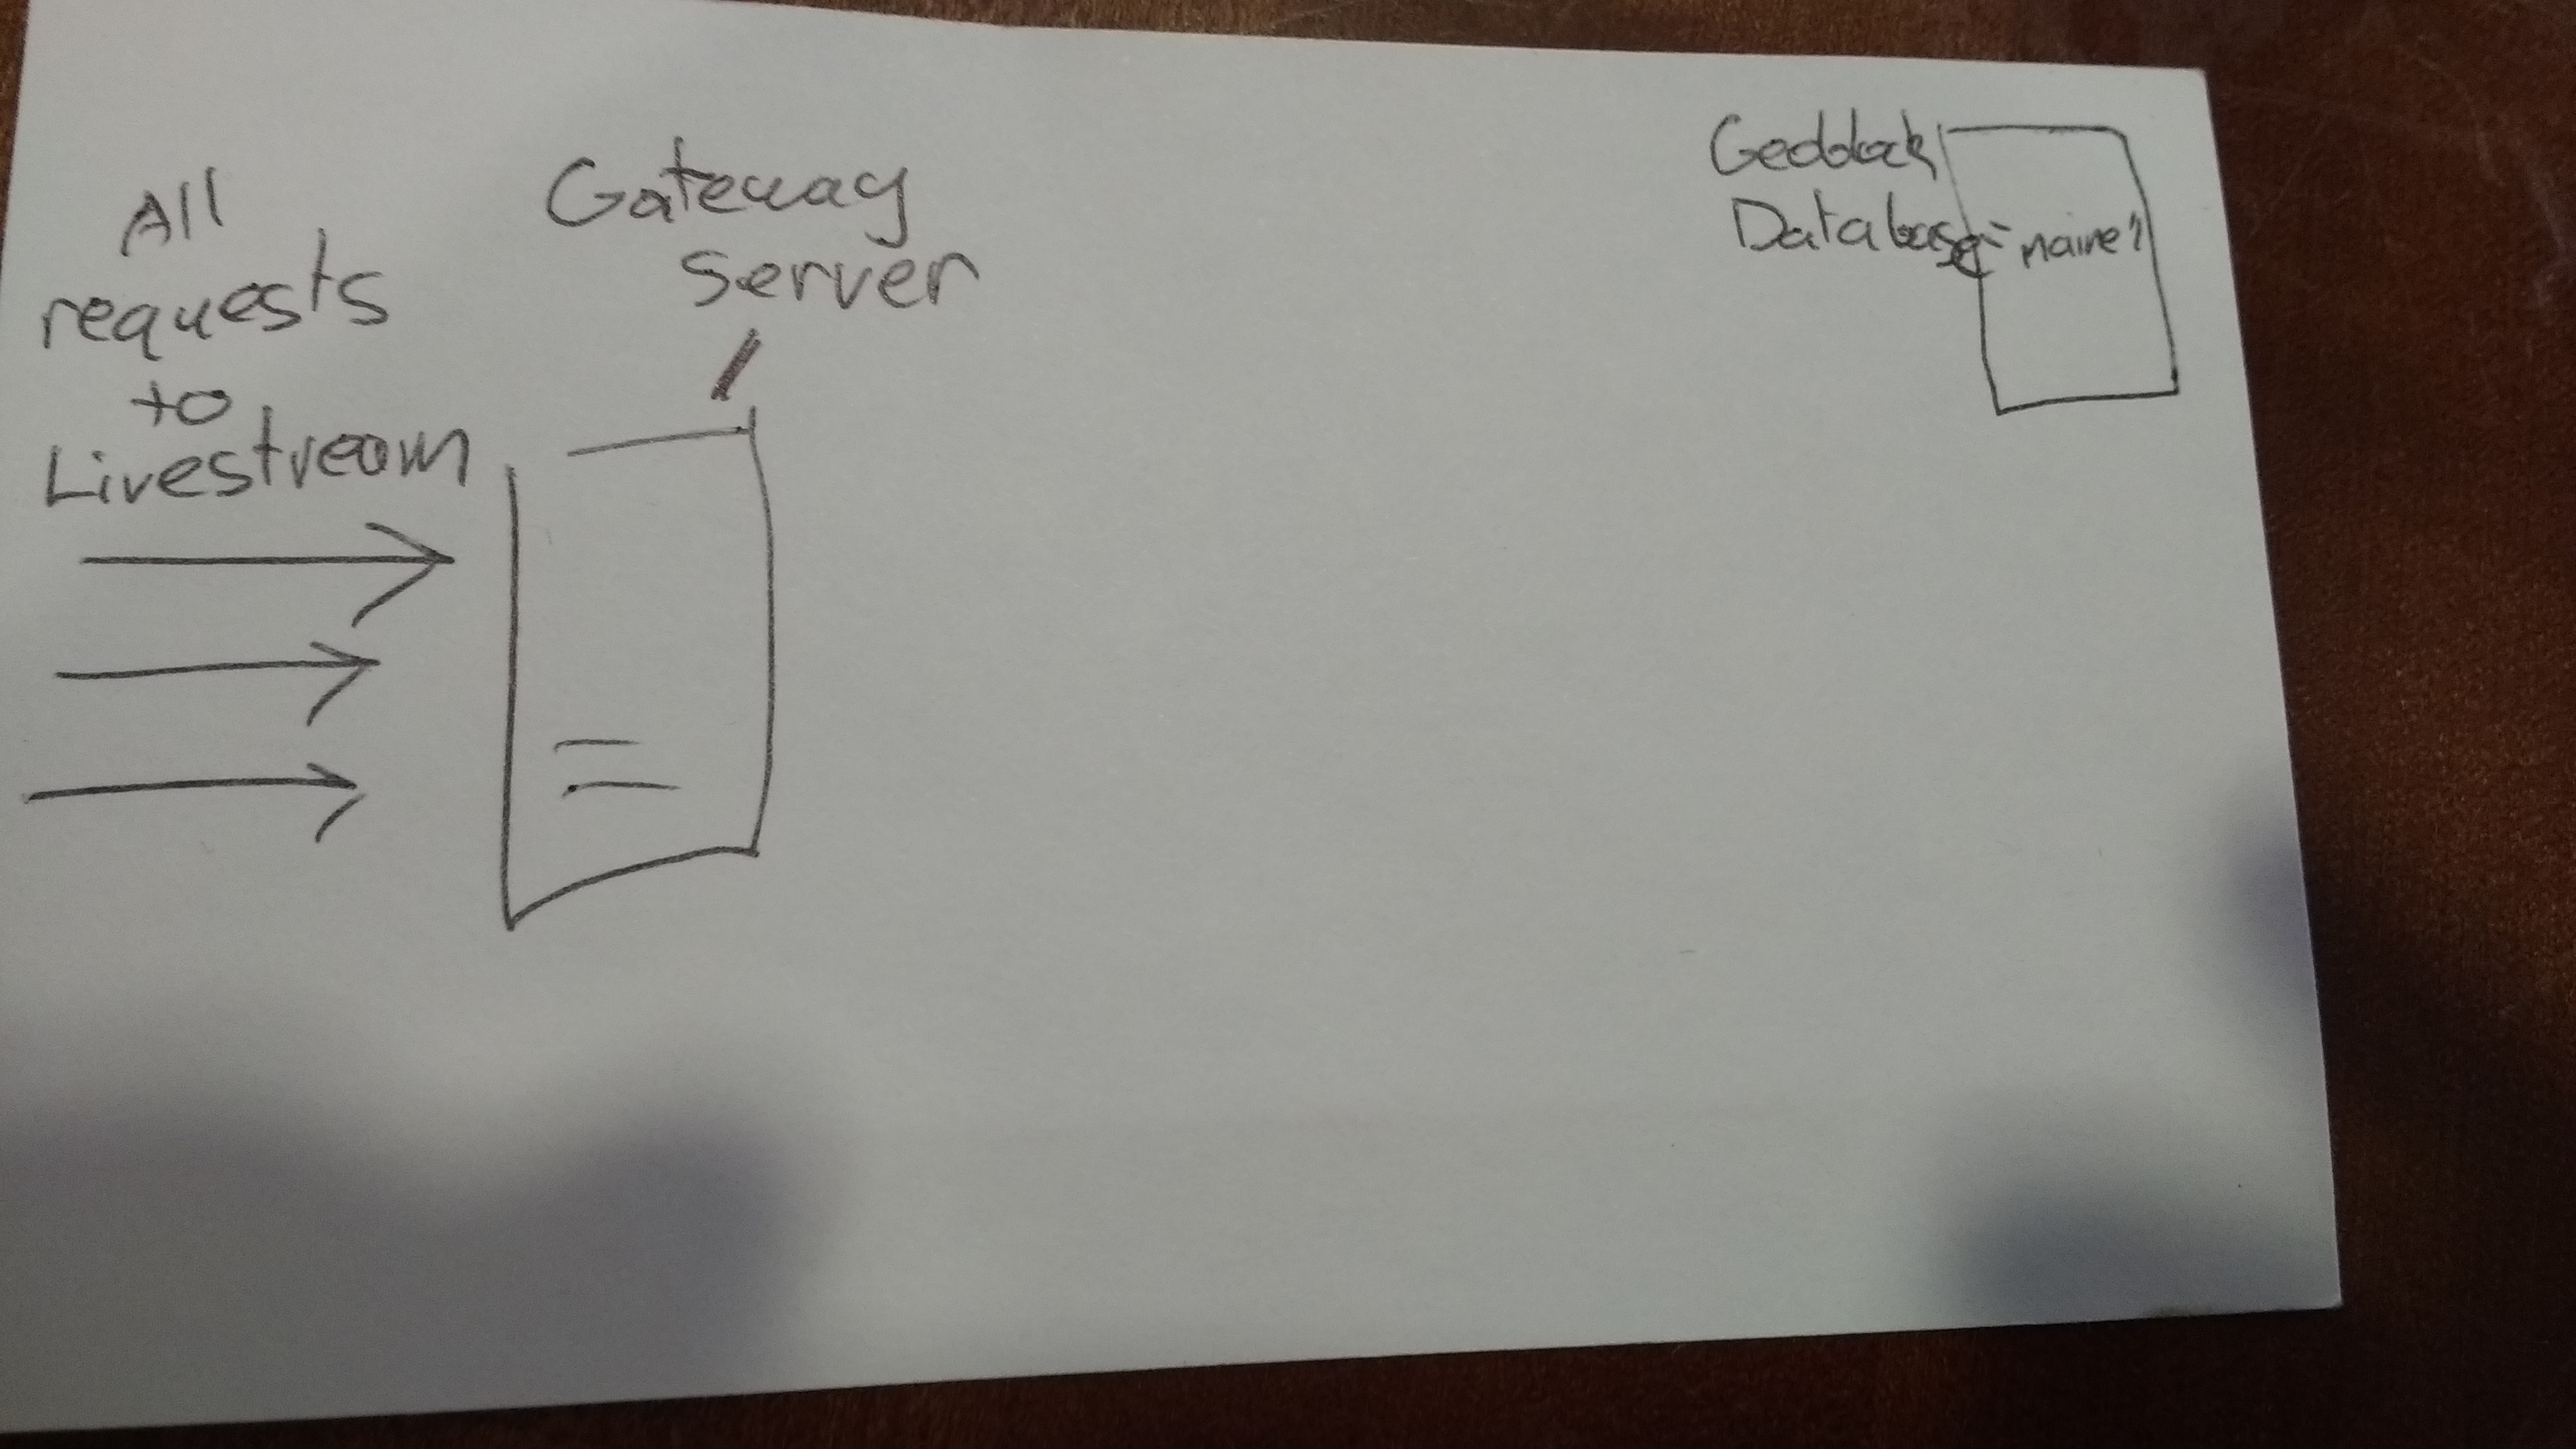 All
requests
to
Livestream
Gateway
Server
Geoblock
Database